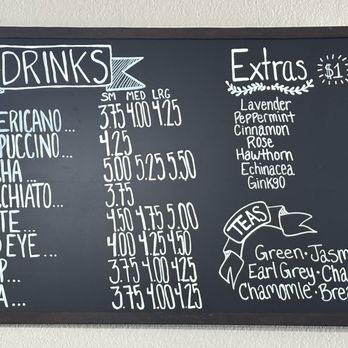 DRINKS
SM MED LRG
ERICANO... 3.75 4.00 4.25
PUCCINO... 4.25
HA... 5.00 5.25 5.50
CHIATO... 3.75
TE... 4.50 4.75 5.00
EYE... 4.00 4.25 4.50
P... 3.75 4.00 4.25
A... 3.75 4.00 4.25
Extras $1
Lavender
Peppermint
Cinnamon
Rose
Hawthorn
Echinacea
Ginkgo
TEAS
Green · Jasm
Earl Grey · Cha
Chamomile · Brea